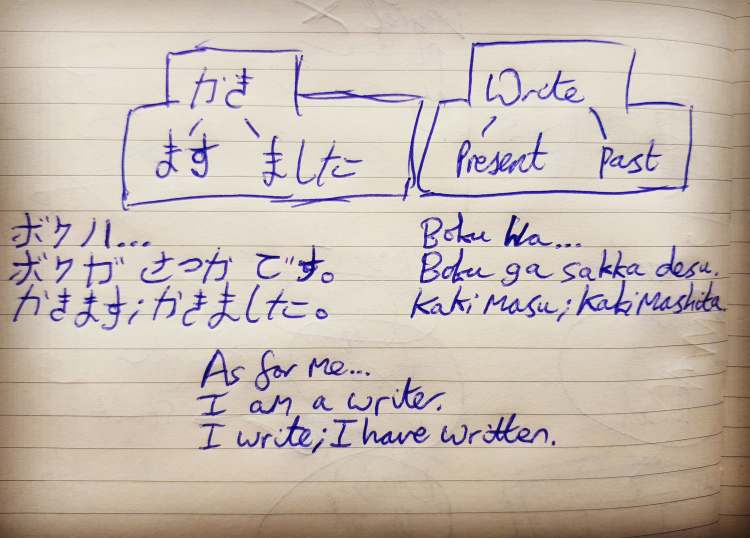 かき
ます ました
Write
Present Past
ボクハ...
ボクガ さっか です。
かきます;かきました。
Boku Wa...
Boku ga sakka desu.
Kaki Masu; Kaki Mashita.
As for me...
I am a writer.
I write; I have written.